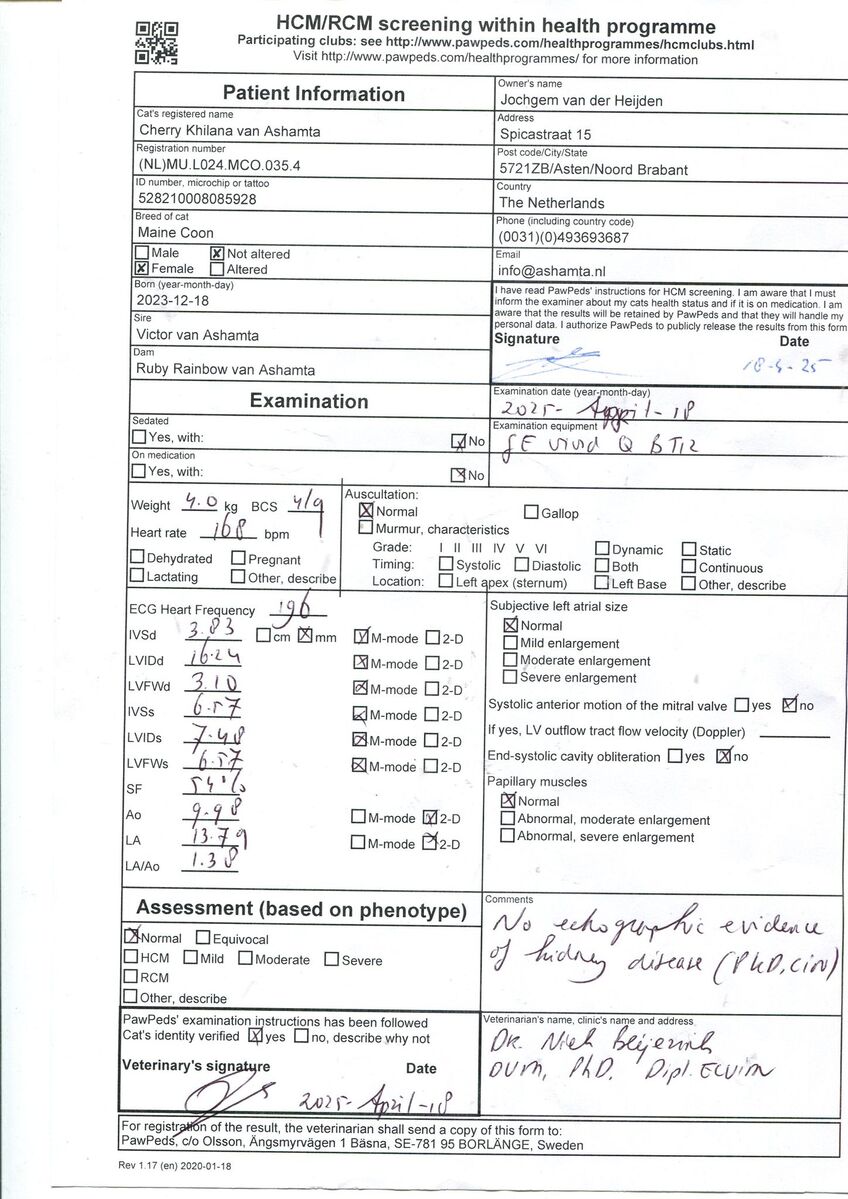 HCM/RCM screening within health programme
Participating clubs: see http://www.pawpeds.com/healthprogrammes/hcmclubs.html
Visit http://www.pawpeds.com/healthprogrammes/ for more information
Patient Information
Cat's registered name
Cherry Khilana van Ashamta
Registration number
(NL)MU.L024.MCO.035.4
ID number, microchip or tattoo
528210008085928
Breed of cat
Maine Coon
Male Not altered
Female Altered
Born (year-month-day)
2023-12-18
Sire
Victor van Ashamta
Dam
Ruby Rainbow van Ashamta
Owner's name
Jochgem van der Heijden
Address
Spicastraat 15
Post code/City/State
5721ZB/Asten/Noord Brabant
Country
The Netherlands
Phone (including country code)
(0031)(0)493693687
Email
info@ashamta.nl
I have read PawPeds' instructions for HCM screening. I am aware that I must
inform the examiner about my cats health status and if it is on medication. I am
aware that the results will be retained by PawPeds and that they will handle my
personal data. I authorize PawPeds to publicly release the results from this form
Signature Date
Examination
Sedated
Yes, with: No
On medication
Yes, with: No
Examination date (year-month-day)
2025- April-18
Examination equipment
GE vivid Q BT12
Weight 4.0 kg BCS 4/9
Heart rate 168 bpm
Dehydrated Pregnant
Lactating Other, describe
Auscultation:
Normal Gallop
Murmur, characteristics
Grade: I II III IV V VI Dynamic Static
Timing: Systolic Diastolic Both Continuous
Location: Left apex (sternum) Left Base Other, describe
ECG Heart Frequency 196
IVSd 3.83 cm mm M-mode 2-D
LVIDd 16.24 M-mode 2-D
LVFWd 3.10 M-mode 2-D
IVSs 6.57 M-mode 2-D
LVIDs 7.48 M-mode 2-D
LVFWs 6.57 M-mode 2-D
SF 54%
Ao 9.98 M-mode 2-D
LA 13.79 M-mode 2-D
LA/Ao 1.38
Subjective left atrial size
Normal
Mild enlargement
Moderate enlargement
Severe enlargement
Systolic anterior motion of the mitral valve yes no
If yes, LV outflow tract flow velocity (Doppler)
End-systolic cavity obliteration yes no
Papillary muscles
Normal
Abnormal, moderate enlargement
Abnormal, severe enlargement
Assessment (based on phenotype)
Normal Equivocal
HCM Mild Moderate Severe
RCM
Other, describe
Comments
No echographic evidence
of kidney disease (PKD,
PawPeds' examination instructions has been followed
Cat's identity verified yes no, describe why not
Veterinary's signature Date
2025-April-18
Veterinarian's name, clinic's name and address
Dr. Niek Beijerink
DVM, PhD, Dipl. ECVIM
For registration of the result, the veterinarian shall send a copy of this form to:
PawPeds, c/o Olsson, Ängsmyrvägen 1 Bäsna, SE-781 95 BORLÄNGE, Sweden
Rev 1.17 (en) 2020-01-18